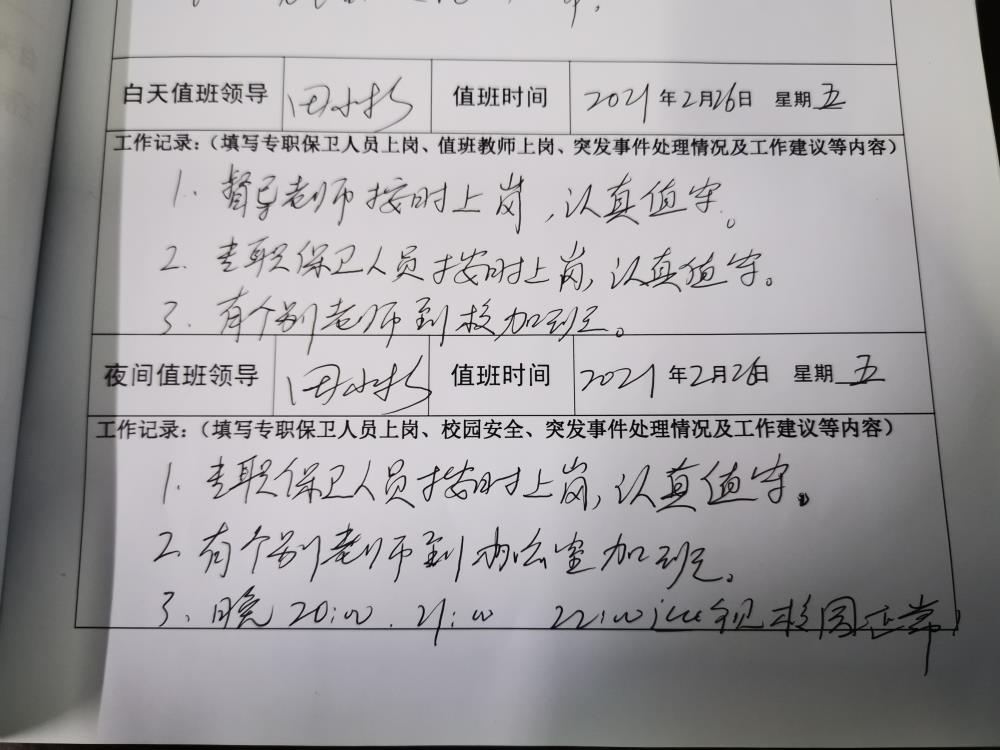 白天值班领导 田小杉 值班时间 2021年2月26日 星期五
工作记录:(填写专职保卫人员上岗、值班教师上岗、突发事件处理情况及工作建议等内容)
1. 督导老师按时上岗,认真值守。
2. 专职保卫人员按时上岗,认真值守。
3. 有个别老师到校加班。
夜间值班领导 田小杉 值班时间 2021年2月26日 星期五
工作记录:(填写专职保卫人员上岗、校园安全、突发事件处理情况及工作建议等内容)
1. 专职保卫人员按时上岗,认真值守。
2. 有个别老师到办公室加班。
3. 晚20:00 . 21:00 22:00巡视校园正常!